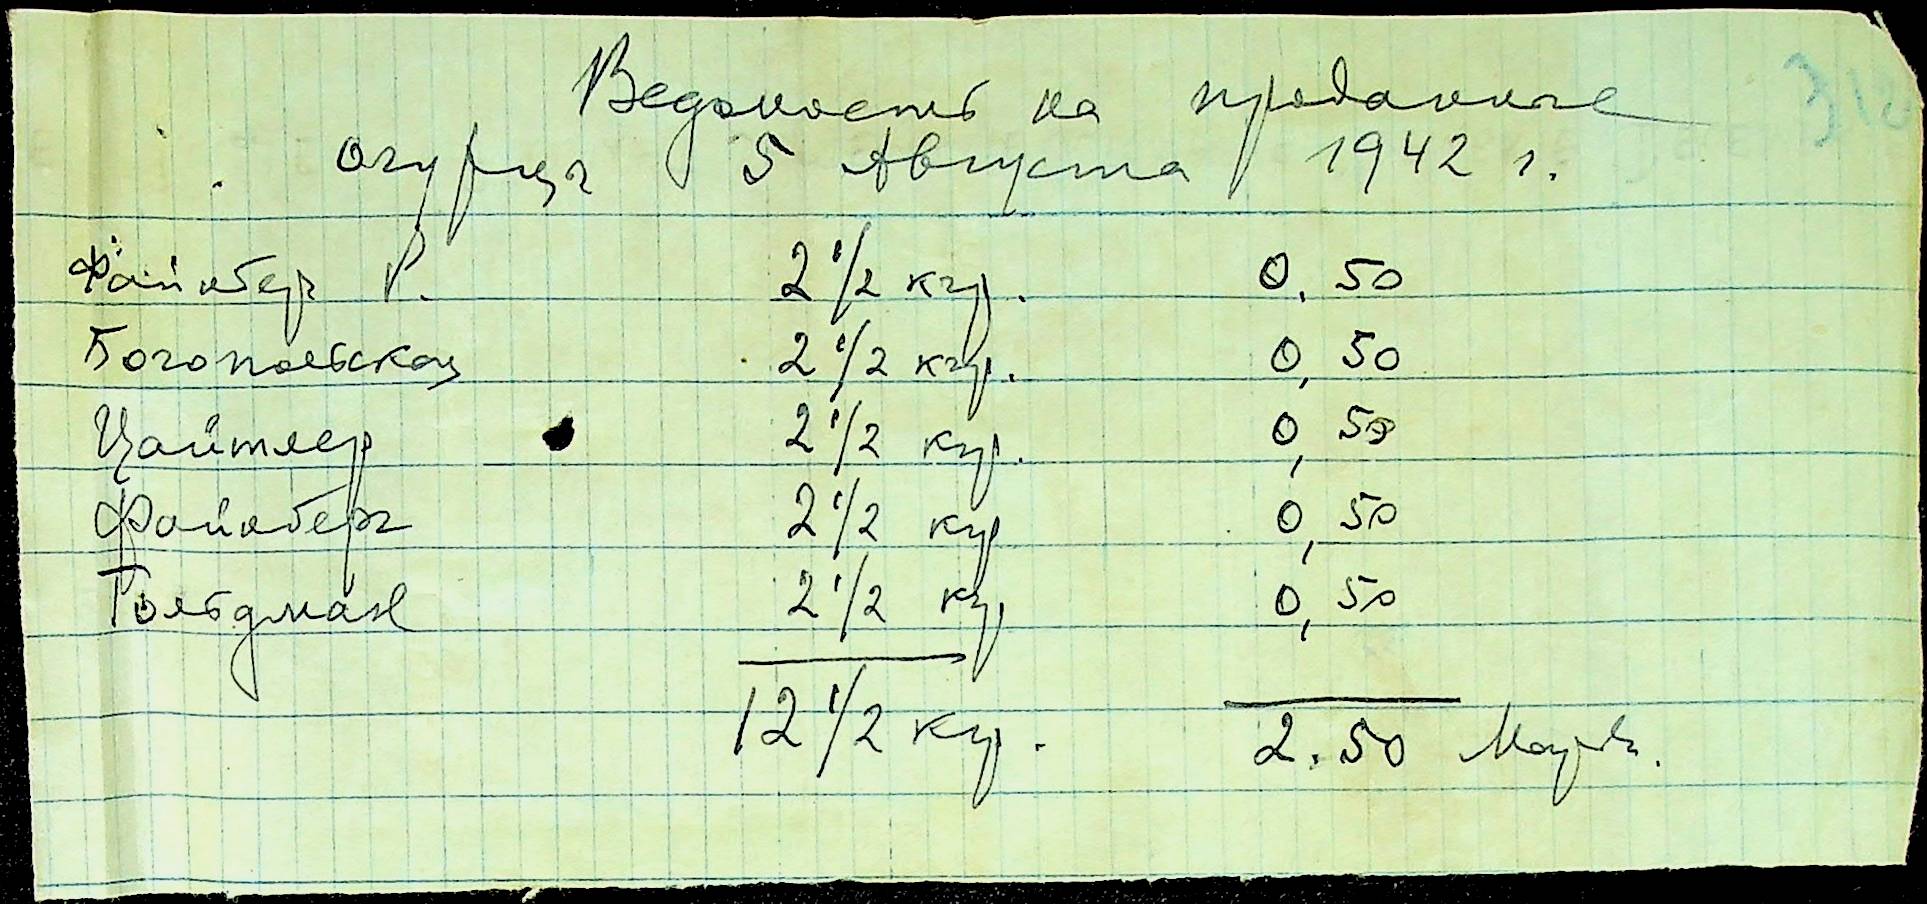 Ведомость на проданные
огурцы 5 Августа 1942 г.
Файнберг Р. 2 1/2 кгр. 0,50
Богопольская 2 1/2 кгр. 0,50
Цайтлер 2 1/2 кгр. 0,50
Файнберг 2 1/2 кгр 0,50
Гольдман 2 1/2 кгр 0,50
12 1/2 кгр. 2.50 Марк.